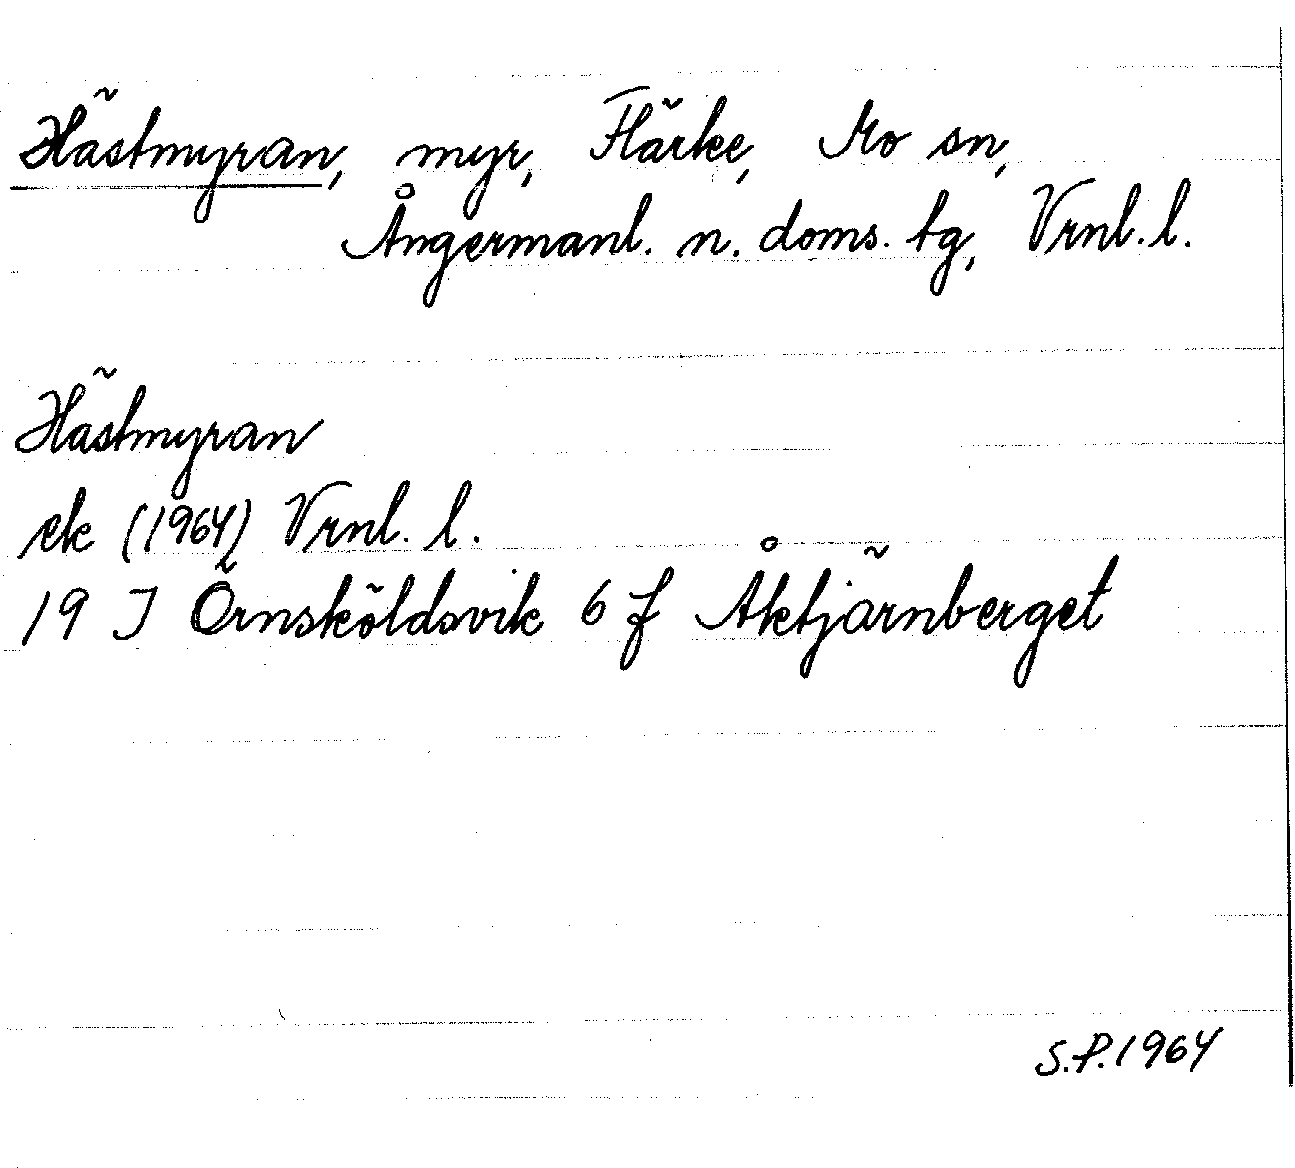 Hästmyran, myr, Flärke, Mo sn,
Ångermanl. n. doms. tg, Vrnl. l.
Hästmyran
ek (1964) Vrnl. l.
19 J Örnsköldsvik 6 f Åktjärnberget
S.P. 1964